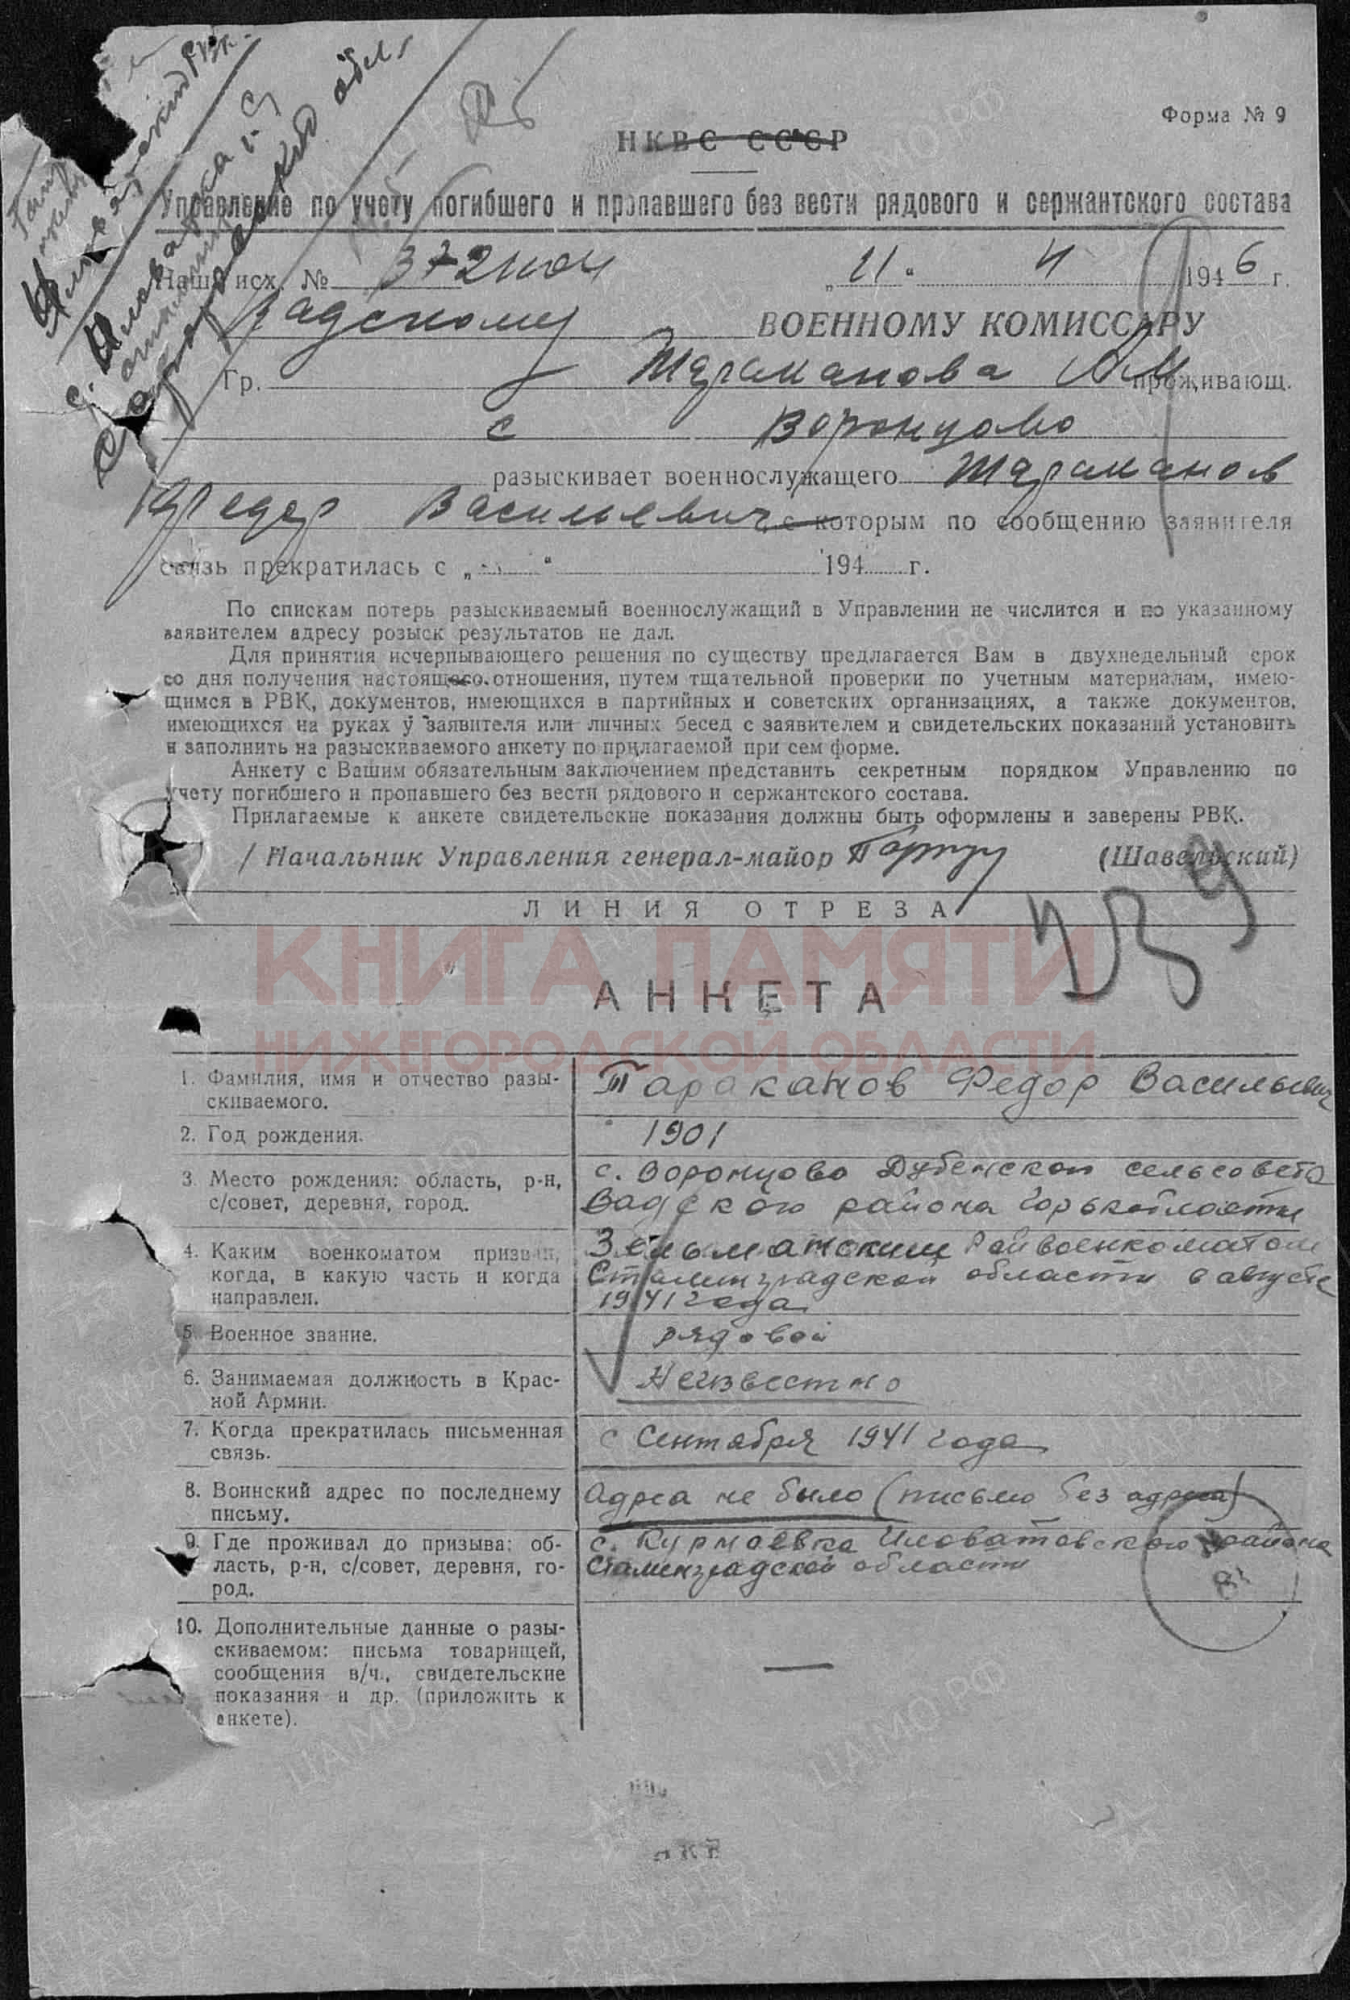 Форма № 9
НКВС СССР
Управление по учету погибшего и пропавшего без вести рядового и сержантского состава
Наш исх. № "11" 4 1946 г.
Вадскому ВОЕННОМУ КОМИССАРУ
Гр. Тараканова проживающ.
с Воронцово
разыскивает военнослужащего Тараканов
Федор Васильевич с которым по сообщению заявителя
связь прекратилась с „ “ 194 г.
По спискам потерь разыскиваемый военнослужащий в Управлении не числится и по указанному
заявителем адресу розыск результатов не дал.
Для принятия исчерпывающего решения по существу предлагается Вам в двухнедельный срок
со дня получения настоящего отношения, путем тщательной проверки по учетным материалам, имею-
щимся в РВК, документов, имеющихся в партийных и советских организациях, а также документов,
имеющихся на руках у заявителя или личных бесед с заявителем и свидетельских показаний установить
и заполнить на разыскиваемого анкету по прилагаемой при сем форме.
Анкету с Вашим обязательным заключением представить секретным порядком Управлению по
учету погибшего и пропавшего без вести рядового и сержантского состава.
Прилагаемые к анкете свидетельские показания должны быть оформлены и заверены РВК.
/ Начальник Управления генерал-майор (Шавельский)
ЛИНИЯ ОТРЕЗА
КНИГА ПАМЯТИ
АНКЕТА
НИЖЕГОРОДСКОЙ ОБЛАСТИ
1. Фамилия, имя и отчество разы-
скиваемого.
Тараканов Федор Васильевич
2. Год рождения.
1901
3. Место рождения: область, р-н,
с/совет, деревня, город.
с. Воронцово Дубенской сельсовета
Вадского района Горьк области
4. Каким военкоматом призван,
когда, в какую часть и когда
направлен.
Зельманским Райвоенкоматом
Сталинградской области в августе
1941 года
5. Военное звание.
рядовой
6. Занимаемая должность в Крас-
ной Армии.
Неизвестно
7. Когда прекратилась письменная
связь.
с Сентября 1941 года
8. Воинский адрес по последнему
письму.
Адреса не было (письмо без адреса)
9. Где проживал до призыва: об-
ласть, р-н, с/совет, деревня, го-
род.
с. Курмаевка Иловатовского района
Сталинградской области
10. Дополнительные данные о разы-
скиваемом: письма товарищей,
сообщения в/ч., свидетельские
показания и др. (приложить к
анкете).
—